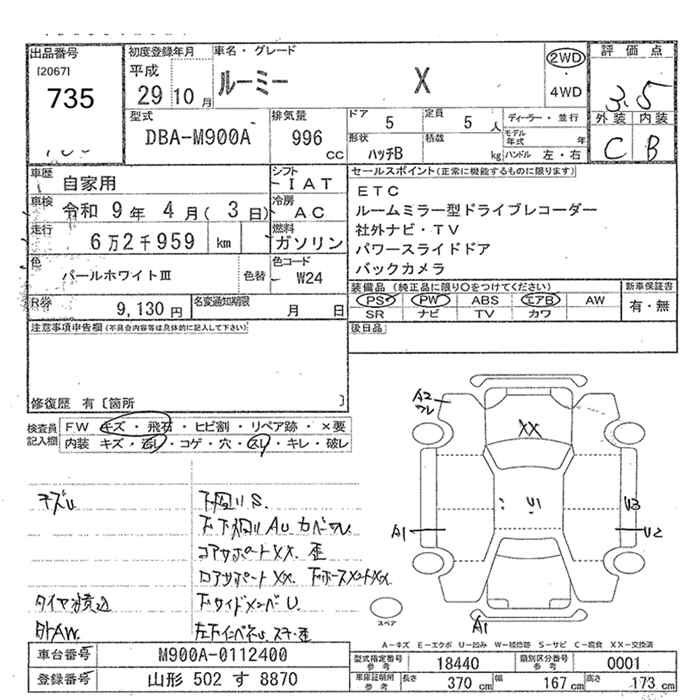 出品番号 初度登録年月 車名・グレード 2WD 評価点
[2067] 平成 ルーミー X 3.5
735 29 10 月 4WD 外装 内装
C B
型式 排気量 ドア 5 定員 5 人 ディーラー・並行
DBA-M900A 996 cc 形状 ハッチB 積載 kg モデル年式 年
ハンドル 左・右
車歴 自家用 シフト IAT セールスポイント(正常に機能するものに限ります)
車検 令和 9年 4月( 3日) 冷房 AC ETC
ルームミラー型ドライブレコーダー
走行 6万2千959 km 燃料 ガソリン 社外ナビ・TV
パワースライドドア
色 パールホワイトⅢ 色替 色コード W24 バックカメラ
装備品 (純正品に限り○をつけてください) 新車保証書
R券 9,130円 名変通知期限 月 日 PS PW ABS エアB AW 有・無
SR ナビ TV カワ
注意事項申告欄(不具合内容等は具体的に記入して下さい) 後日品
修復歴 有〔箇所 〕
検査員記入欄 FW キズ・飛石・ヒビ割・リペア跡・×要
内装 キズ・汚レ・コゲ・穴・スレ・キレ・破レ
A2
XX
U1
U3
A1 U2
A1
スペア
キズU 下回りS
コアサポートXX 歪
タイヤ積込 下サイドメンバU
外AW
A－キズ E－エクボ U－凹み W－補修跡 S－サビ C－腐食 XX－交換済
車台番号 M900A-0112400 型式指定番号 参考 18440 類別区分番号 参考 0001
登録番号 山形 502 す 8870 車庫証明用 参考 長さ 370 cm 幅 167 cm 高さ 173 cm